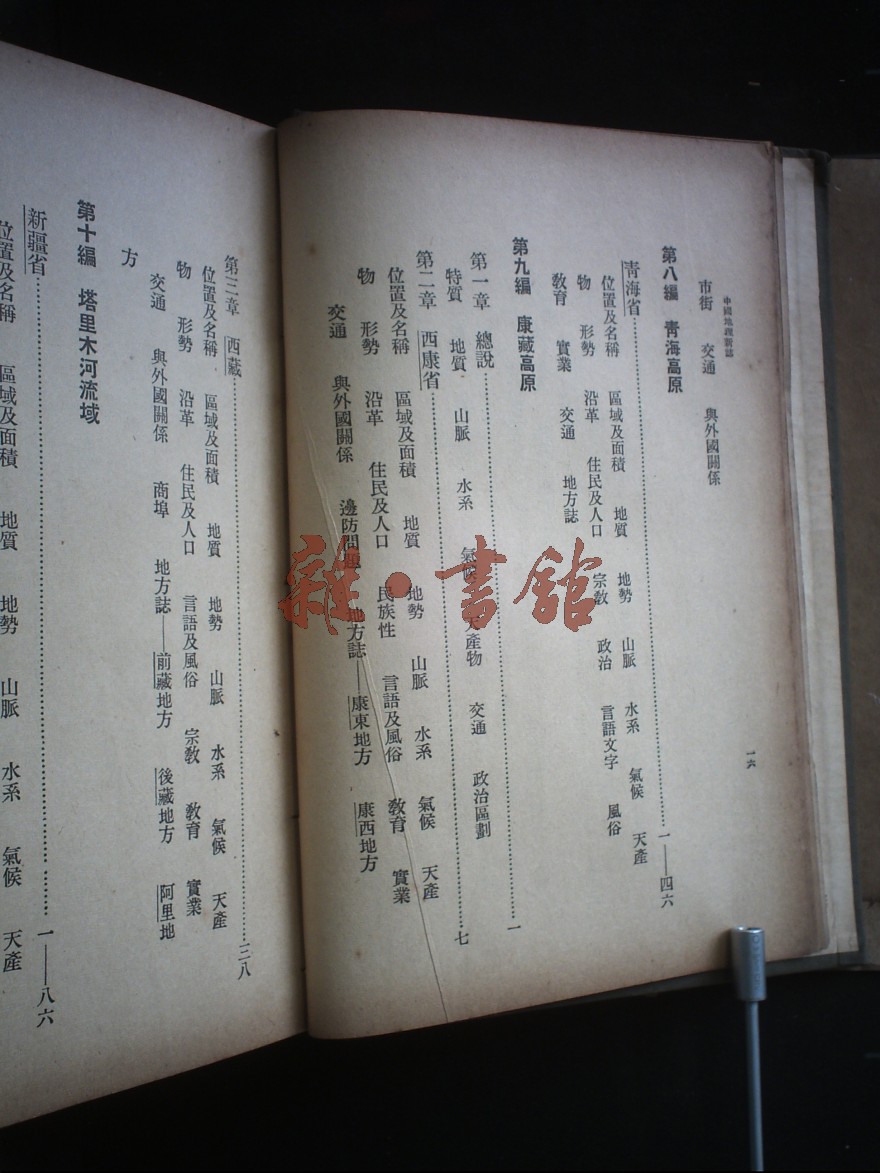 中國地理新誌
一六
市街 交通 與外國關係
第八編 青海高原
青海省……一——四六
位置及名稱 區域及面積 地質 地勢 山脈 水系 氣候 天產
物 形勢 沿革 住民及人口 宗教 政治 言語文字 風俗
教育 實業 交通 地方誌
第九編 康藏高原
第一章 總說……一
特質 地質 山脈 水系 氣候 天產物 交通 政治區劃
第二章 西康省……七
位置及名稱 區域及面積 地質 地勢 山脈 水系 氣候 天產
物 形勢 沿革 住民及人口 民族性 言語及風俗 教育 實業
交通 與外國關係 邊防問題 地方誌——康東地方 康西地方
第三章 西藏……三八
位置及名稱 區域及面積 地質 地勢 山脈 水系 氣候 天產
物 形勢 沿革 住民及人口 言語及風俗 宗教 教育 實業
交通 與外國關係 商埠 地方誌——前藏地方 後藏地方 阿里地
方
第十編 塔里木河流域
新疆省……一——八六
位置及名稱 區域及面積 地質 地勢 山脈 水系 氣候 天產
雜·書館